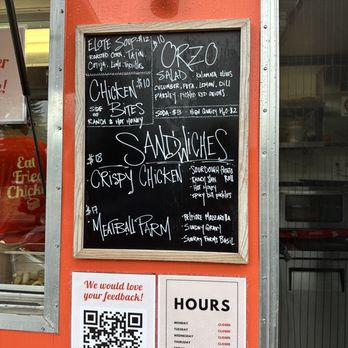 Elote Soup $12
Roasted Corn, Tajin
Cotija, Lime,
$10
ORZO
SALAD - Kalamata Olives
Cucumber, Feta, Lemon, Dill
Parsley, Pickled Red Onions
Chicken $10
Bites
Side of
Ranch & Hot Honey
Soda $3 - High Quality H2O $2
SANDWICHES
Crispy Chicken
- Sourdough Potato Roll
- Ranch Slaw
- Hot Honey
- Spicy Dill Pickles
$17
Meatball Parm
- Pulled Mozzarella
- Sunday Gravy
- Basil
Eat
Fried
Chicken
We would love
your feedback!
HOURS
MONDAY CLOSED
TUESDAY CLOSED
WEDNESDAY CLOSED
THURSDAY CLOSED